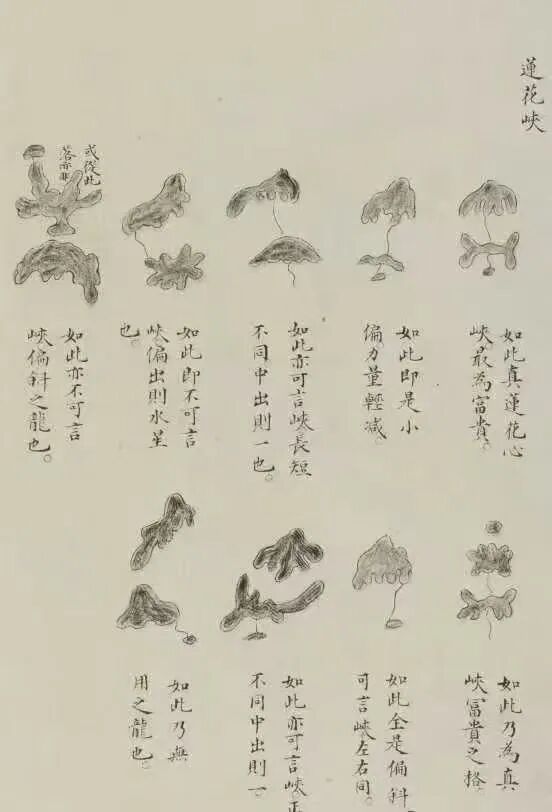 蓮花峽
如此真蓮花心
峽最為富貴。
如此即是小
偏力量輕減
如此亦可言峽長短
不同中出則一也。
如此即不可言
峽偏出則水星
也。
或從此
落亦非
如此亦不可言
峽偏斜之龍也。
如此乃為真
峽富貴之格。
如此全是偏斜
可言峽左右同。
如此亦可言峽正
不同中出則一
如此乃無
用之龍也。